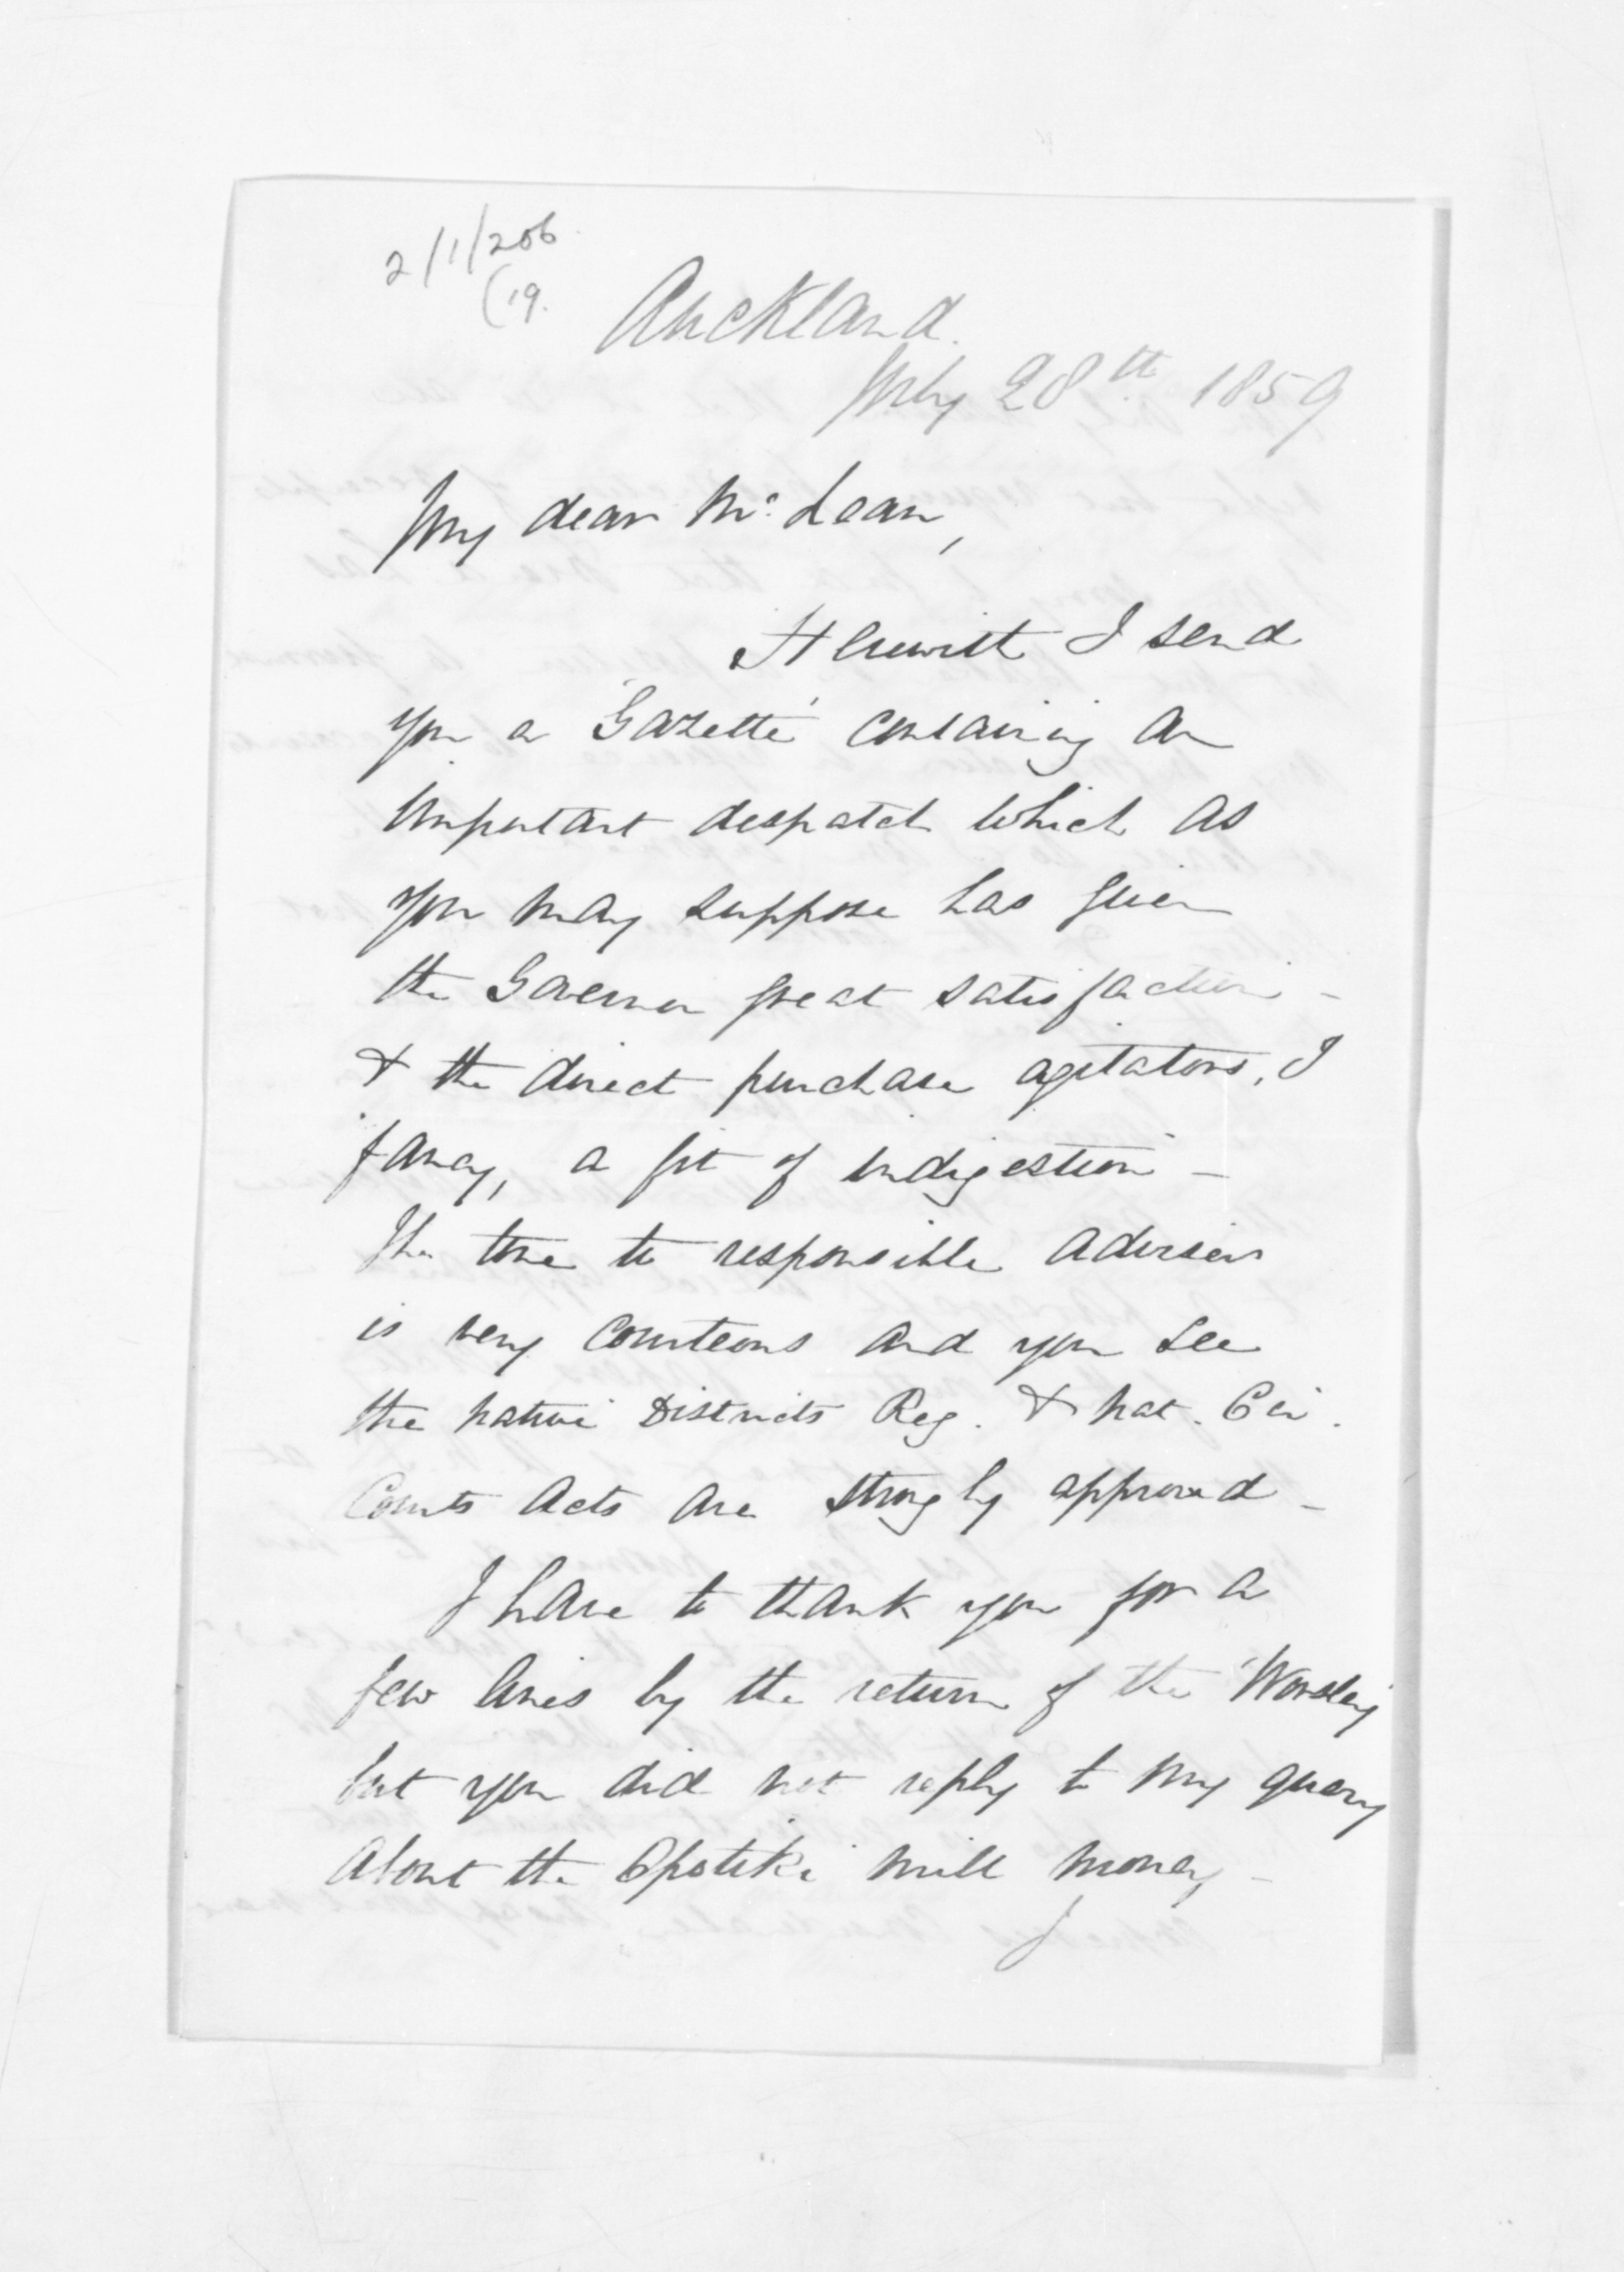 2/1/206
(19.
Auckland.
July 28th 1859
My dear Mc. Lean,
Herewith I send
you a 'Gazette' containing an
important despatch which as
you may suppose has given
the Governor great satisfaction -
& the direct purchase agitators, I
fancy, a fit of indigestion -
The tone to responsible advisers
is very courteous and you see
the native Districts Reg. & Nat. Cir.
Courts Acts are strongly approved -
I have to thank you for a
few lines by the return of the 'Wonsley'
but you did not reply to my query
about the Opotiki mill money -